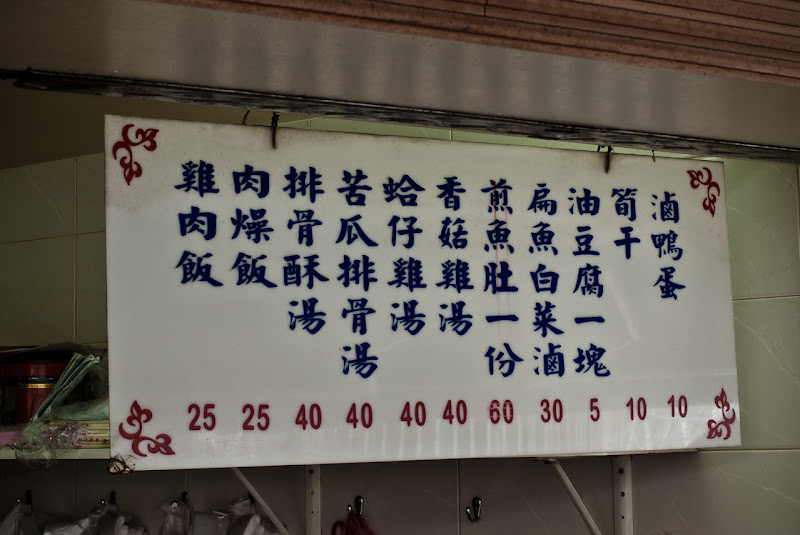 雞肉飯
肉燥飯
排骨酥湯
苦瓜排骨湯
蛤仔雞湯
香菇雞湯
煎魚肚一份
扁魚白菜滷
油豆腐一塊
筍干
滷鴨蛋
25 25 40 40 40 40 60 30 5 10 10